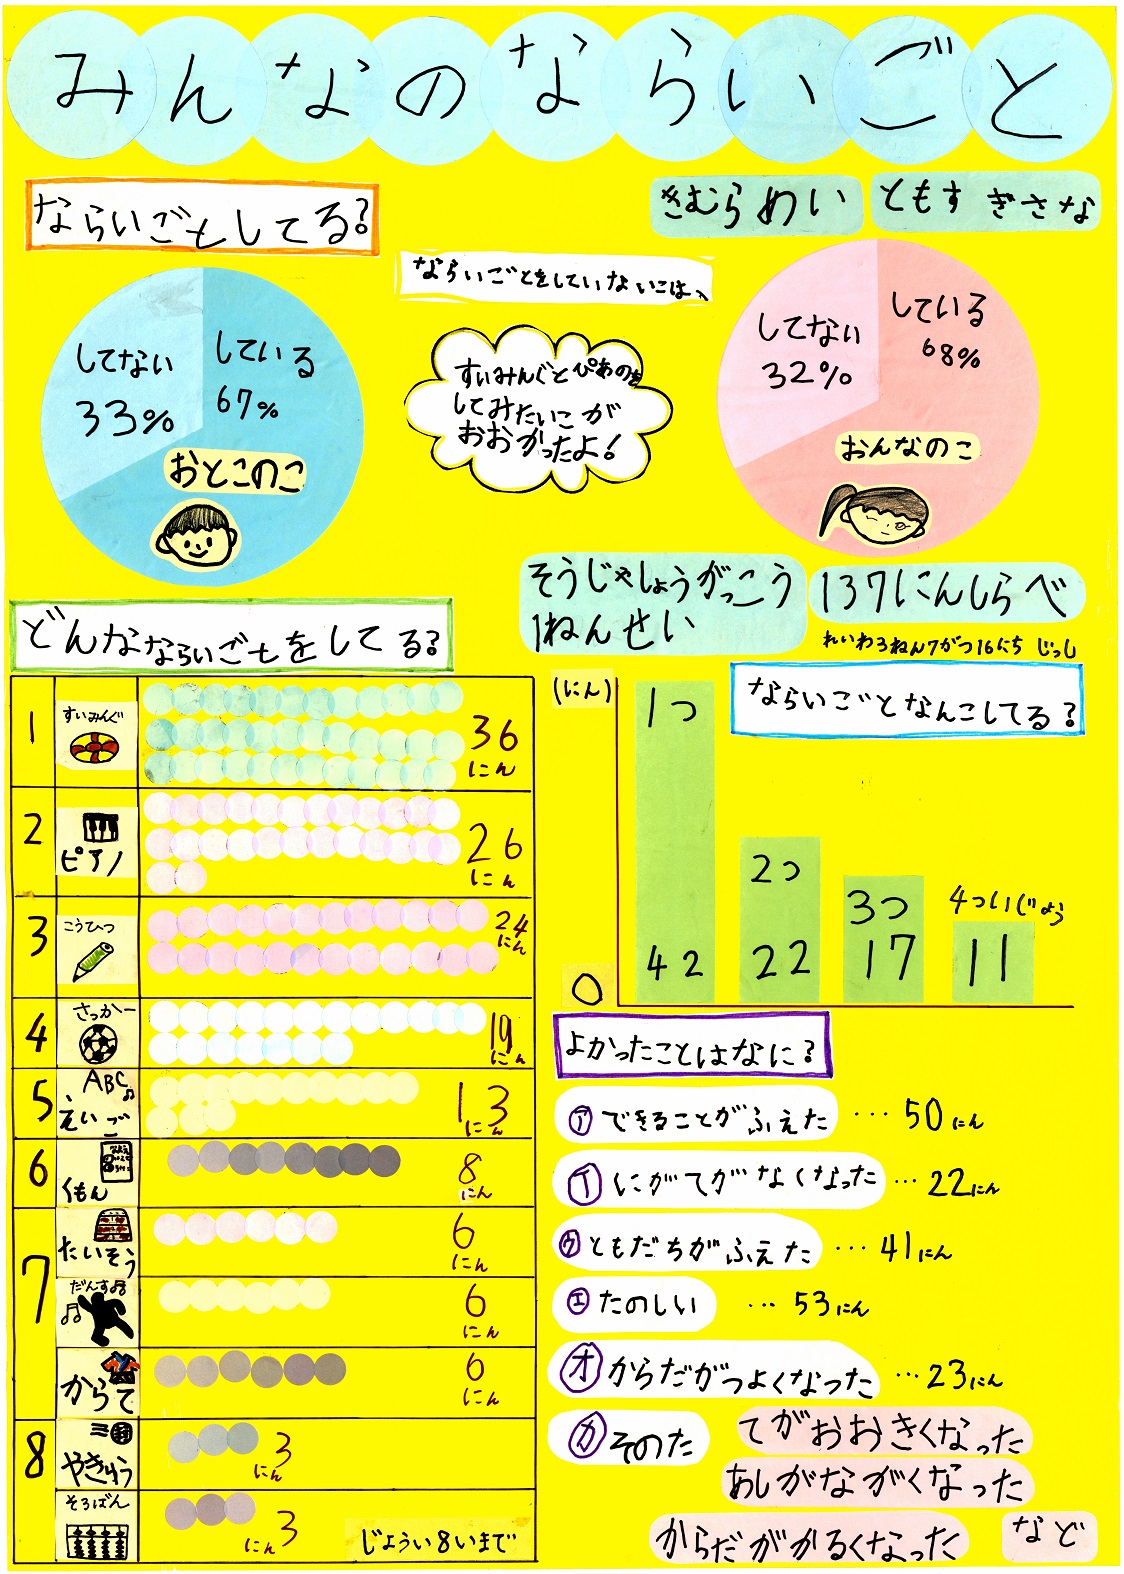 みんなのならいごと
ならいごとしてる?
きむらめい
ともすぎさな
ならいごとをしていないこは、
してない
33%
している
67%
おとこのこ
すいみんぐとぴあのを
してみたいこが
おおかったよ!
してない
32%
している
68%
おんなのこ
そうじゃしょうがっこう
1ねんせい
137にんしらべ
れいわ3ねん7がつ16にち じっし
どんなならいごとをしてる?
1
すいみんぐ
36
にん
2
ピアノ
26
にん
3
こうひつ
24
にん
4
さっかー
19
にん
5
ABC
えいご
13
にん
6
くもん
8
にん
7
たいそう
6
にん
だんす
6
にん
からて
6
にん
8
やきゅう
3
にん
そろばん
3
にん
じょうい8いまで
ならいごとなんこしてる?
(にん)
0
1つ
42
2つ
22
3つ
17
4ついじょう
11
よかったことはなに?
ア できることがふえた … 50にん
イ にがてがなくなった … 22にん
ウ ともだちがふえた … 41にん
エ たのしい … 53にん
オ からだがつよくなった … 23にん
カ そのた
てがおおきくなった
あしがながくなった
からだがかるくなった
など